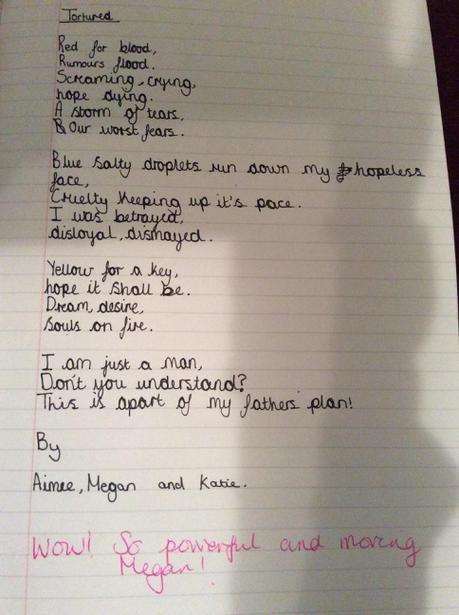 Tortured
Red for blood,
Rumours flood.
Screaming, crying,
hope dying.
A storm of tears,
Our worst fears.
Blue salty droplets run down my hopeless
face,
Cruelty keeping up it's pace.
I was betrayed,
disloyal, dismayed.
Yellow for a key,
hope it shall be.
Dream, desire,
Souls on fire.
I am just a man,
Don't you understand?
This is apart of my fathers plan!
By
Aimee, Megan and Katie.
Wow! So powerful and moving
Megan!